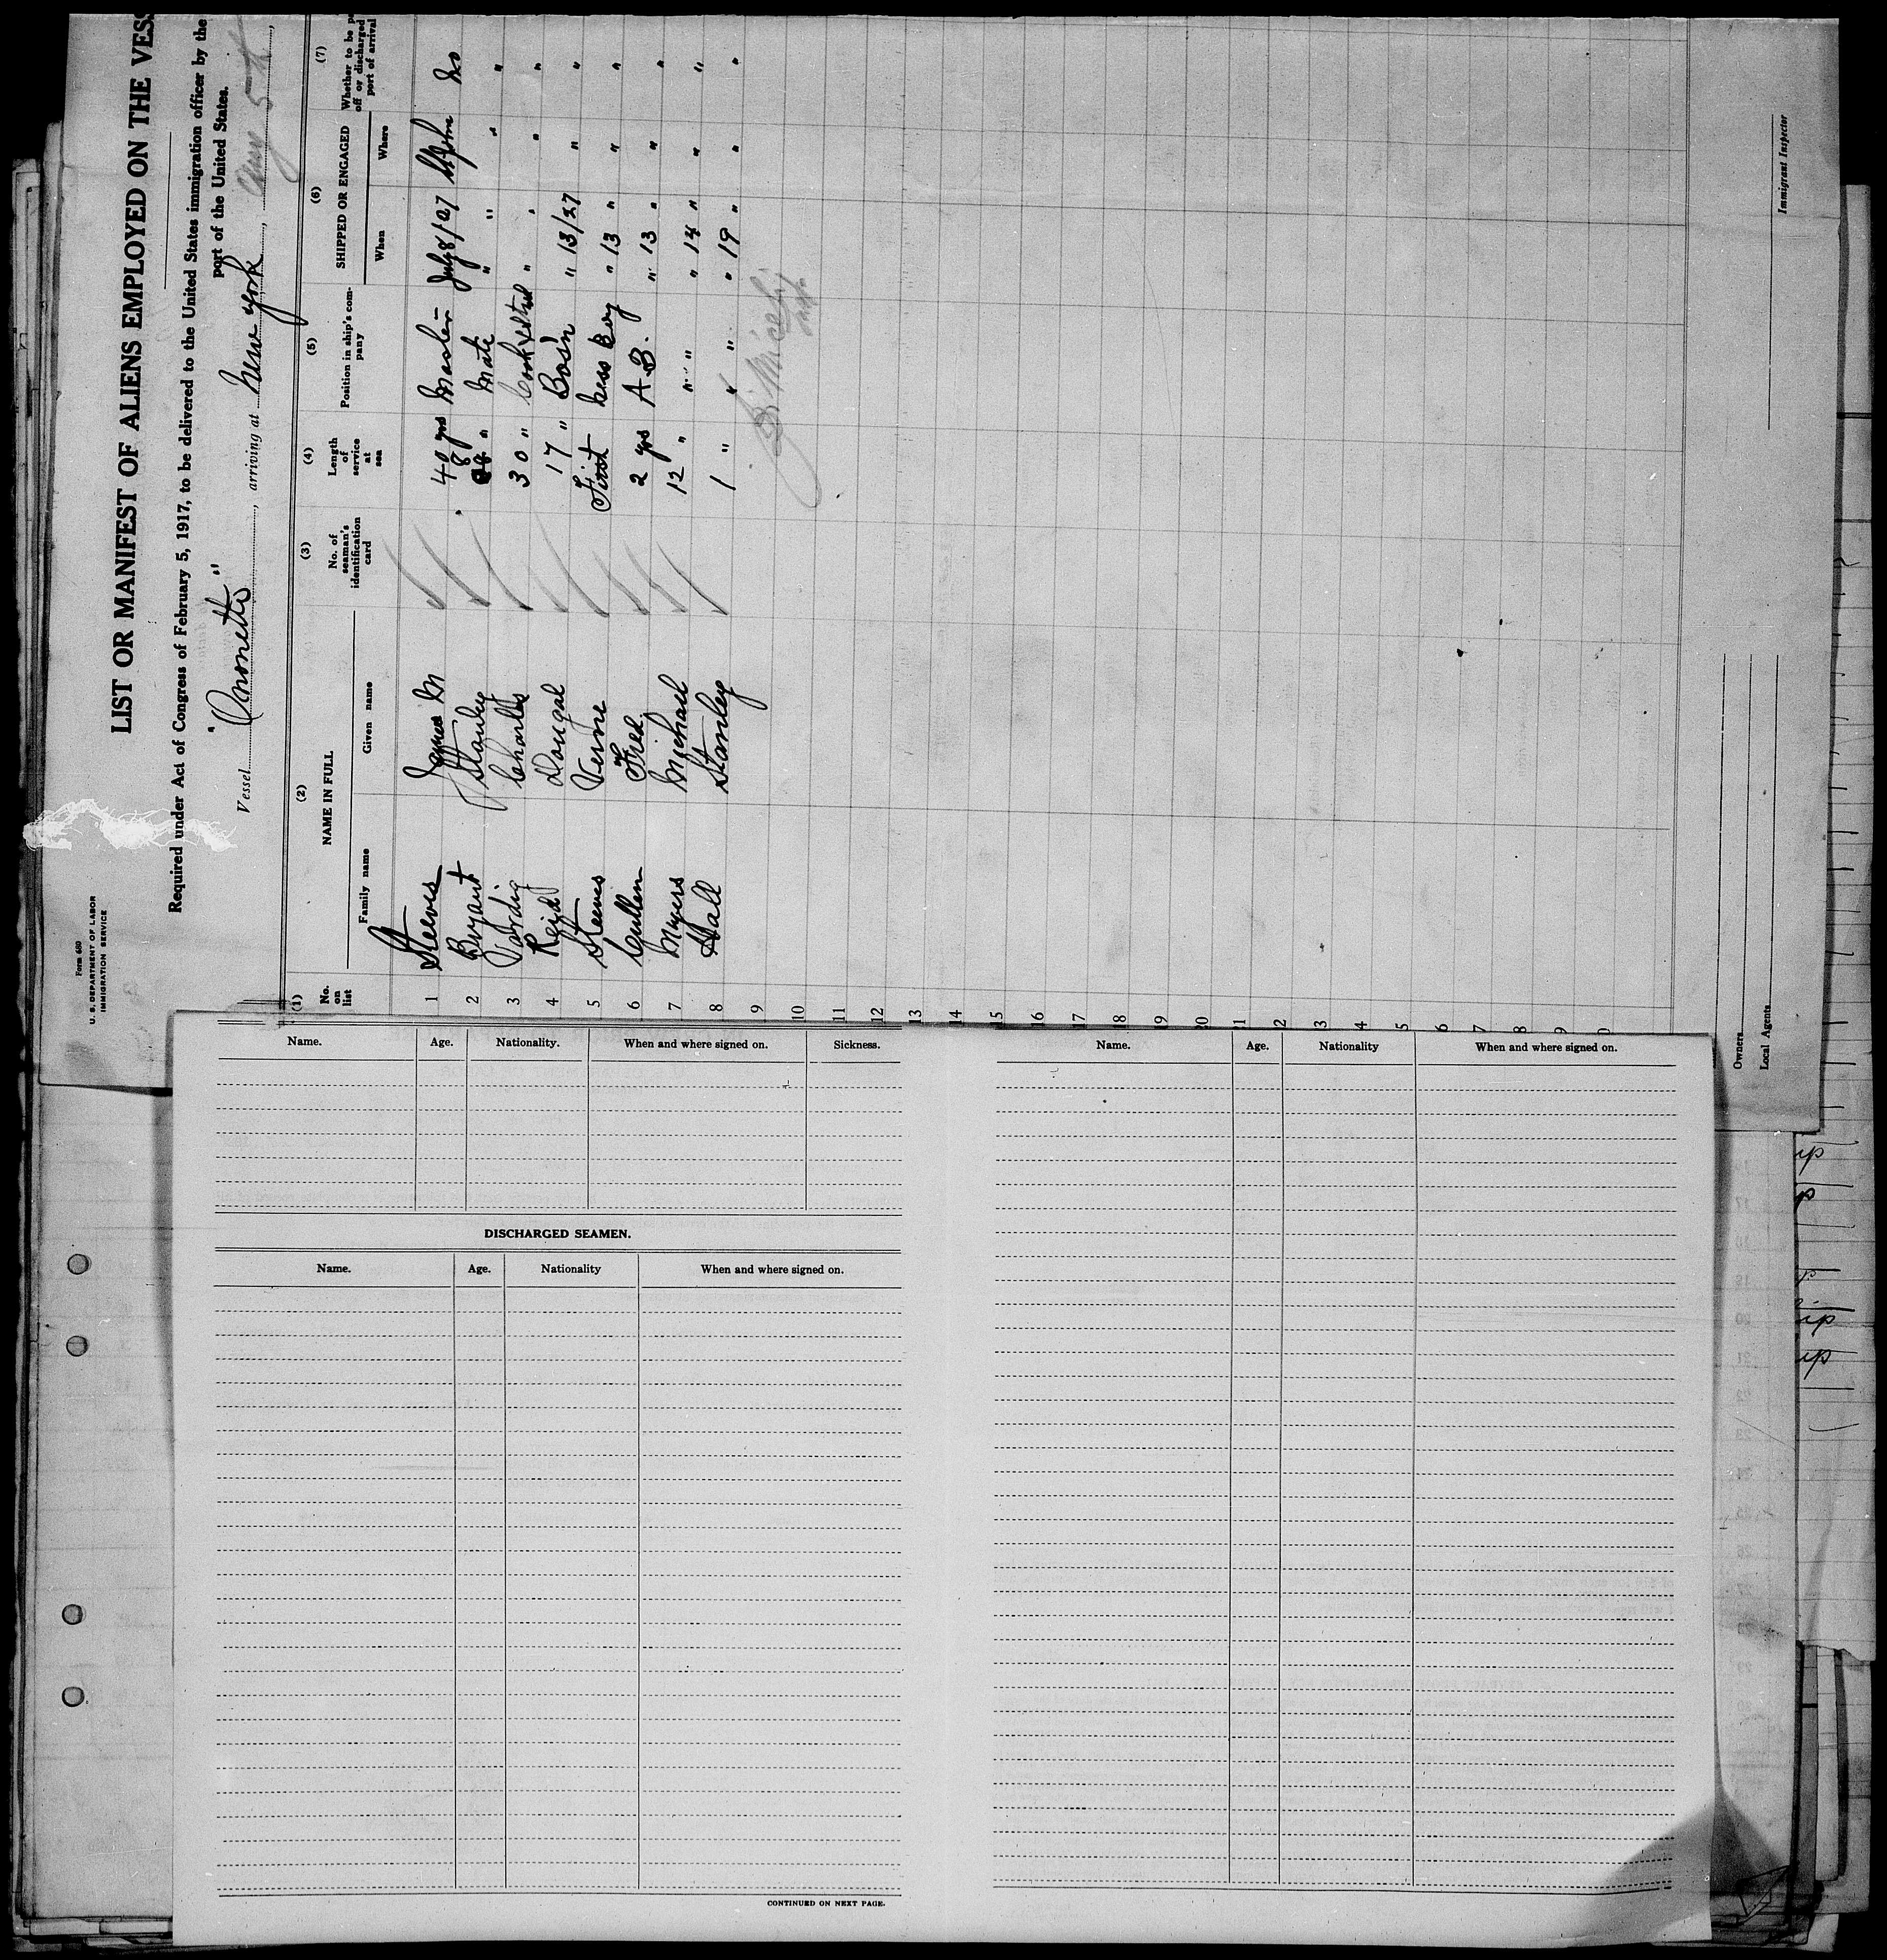 Form 680
U. S. DEPARTMENT OF LABOR
IMMIGRATION SERVICE
LIST OR MANIFEST OF ALIENS EMPLOYED ON THE VESS
Required under Act of Congress of February 5, 1917, to be delivered to the United States immigration officer by the
port of the United States.
Vessel , arriving at New York, Aug 5th,
(1) (2) (3) (4) (5) (6) (7)
No. on list NAME IN FULL No. of seaman's identification card Length of service at sea Position in ship's company SHIPPED OR ENGAGED Whether to be p off or discharged port of arrival
Family name Given name When Where
1 Steeves James M 40 yrs Master July 8/27 St John No
2 Bryant Stanley 8 " Mate " " " "
3 Charles 30 " Cook & Stwd " " " "
4 Reid Dougal 17 " Bos'n " 13/27 " "
5 Steeves Verne First Mess Boy " 13 " " "
6 Cullen Fred 2 yrs A.B. " 13 " " "
7 Myers Michael 12 " " " " 14 " " "
8 Hall Stanley 1 " " " " 19 " " "
9
10
11
12
13
14
15
16
17
18
19
20
1
2
3
4
5
6
7
8
9
0
Immigrant Inspector
Owners
Local Agents
Name. Age. Nationality. When and where signed on. Sickness.
DISCHARGED SEAMEN.
Name. Age. Nationality When and where signed on.
CONTINUED ON NEXT PAGE.
Name. Age. Nationality When and where signed on.